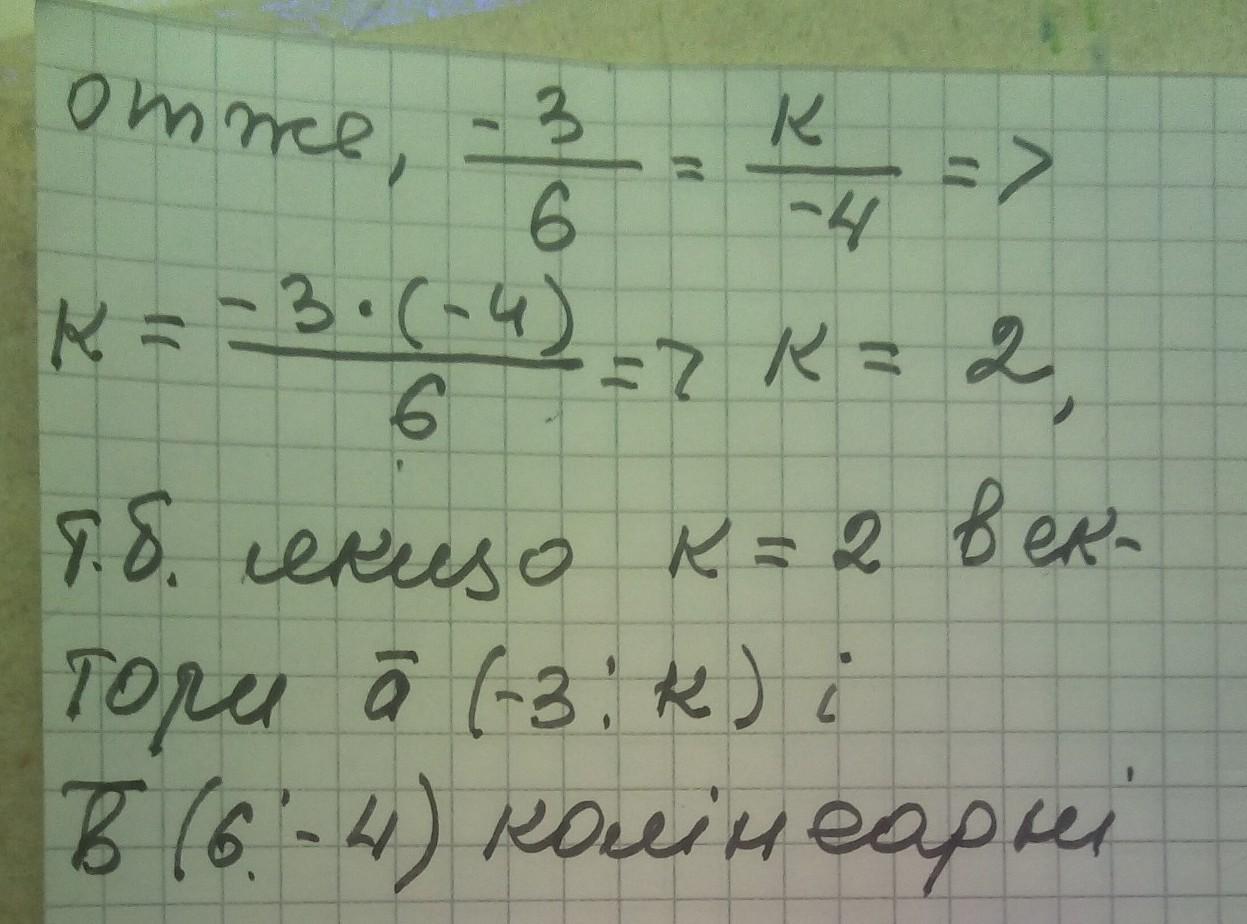 отже, -3/6 = к/-4 =>
к = -3·(-4)/6 => к = 2,
т.б. якщо к = 2 век-
тори a̅ (-3; к) і
в̅ (6; -4) колінеарні